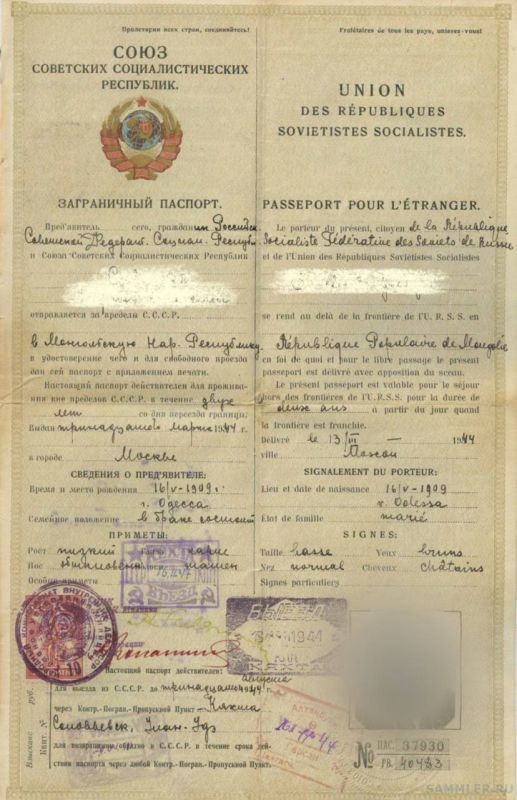 Пролетарии всех стран, соединяйтесь!
СОЮЗ
СОВЕТСКИХ СОЦИАЛИСТИЧЕСКИХ
РЕСПУБЛИК.
ЗАГРАНИЧНЫЙ ПАСПОРТ.
Пред'явитель сего, гражданин Российск.
Советской Федерат. Социал. Республ.
и Союза Советских Социалистических Республик
отправляется за пределы С.С.С.Р.
в Монгольскую Нар. Республику
в удостоверение чего и для свободного проезда
дан сей паспорт с приложением печати.
Настоящий паспорт действителен для прожива-
ния вне пределов С.С.С.Р. в течение двух
лет со дня переезда границы.
Выдан тринадцатого марта 1944 г.
в городе Москве
СВЕДЕНИЯ О ПРЕД'ЯВИТЕЛЕ:
Время и место рождения 16/V-1909 г.
г. Одесса
Семейное положение в браке состоит
ПРИМЕТЫ:
Рост низкий карие
Нос
Особые приметы
Настоящий паспорт действителен:
для выезда из С.С.С.Р. до
через Контр.-Погран.-Пропускной Пункт- Кяхта
Соловьевск, Улан-Удэ
для возвращения обратно в С.С.С.Р. в течение срока дей-
ствия паспорта через любой Контр.-Погран.-Пропускной Пункт.
Взыскано руб.
Квит. №
Prolétaires de tous les pays, unissez-vous!
UNION
DES RÉPUBLIQUES
SOVIÉTISTES SOCIALISTES.
PASSEPORT POUR L'ÉTRANGER.
Le porteur du présent, citoyen de la République
Socialiste Fédérative des Soviets de Russie
et de l'Union des Républiques Soviétistes Socialistes
se rend au delà de la frontière de l'U.R.S.S. en
République Populaire de Mongolie
en foi de quoi et pour le libre passage le présent
passeport est délivré avec apposition du sceau.
Le présent passeport est valable pour le séjour
hors des frontières de l'U.R.S.S. pour la durée de
deux ans à partir du jour quand
la frontière est franchie.
Délivré le 13/III 1944
ville Moscou
SIGNALEMENT DU PORTEUR:
Lieu et date de naissance 16/V-1909
v. Odessa
État de famille marié
SIGNES:
Taille basse Yeux bruns
Nez normal Cheveux châtains
Signes particuliers
№ ПАС. 37930
РВ. 40483
SAMMLER.RU